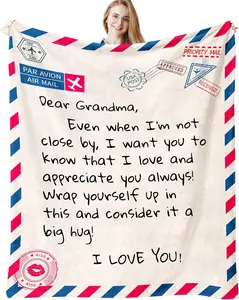 PRIORITY MAIL
PAR AVION
AIR MAIL
USA POST
APPROVED
RECEIVED
Dear Grandma,
Even when I'm not
close by, I want you to
know that I love and
appreciate you always!
Wrap yourself up in
this and consider it a
big hug!
I LOVE YOU!
KISS
KISS